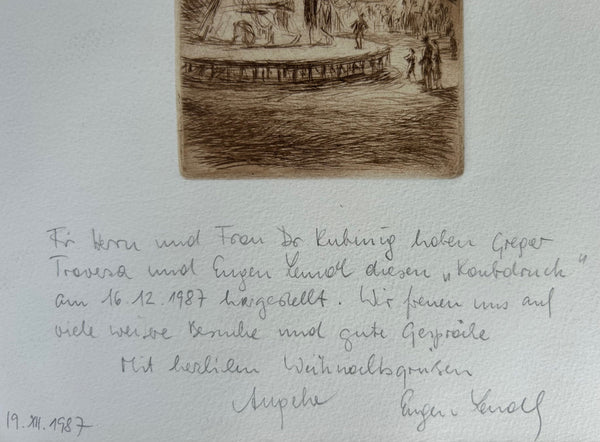 Für Herrn und Frau Dr Kubinig haben Gregor
Traversa und Eugen Lendl diesen „Raubdruck"
am 16.12.1987 hergestellt. Wir freuen uns auf
viele weitere Besuche und gute Gespräche
Mit herzlichen Weihnachtsgrüßen
Angelika Eugen Lendl
19.XII.1987